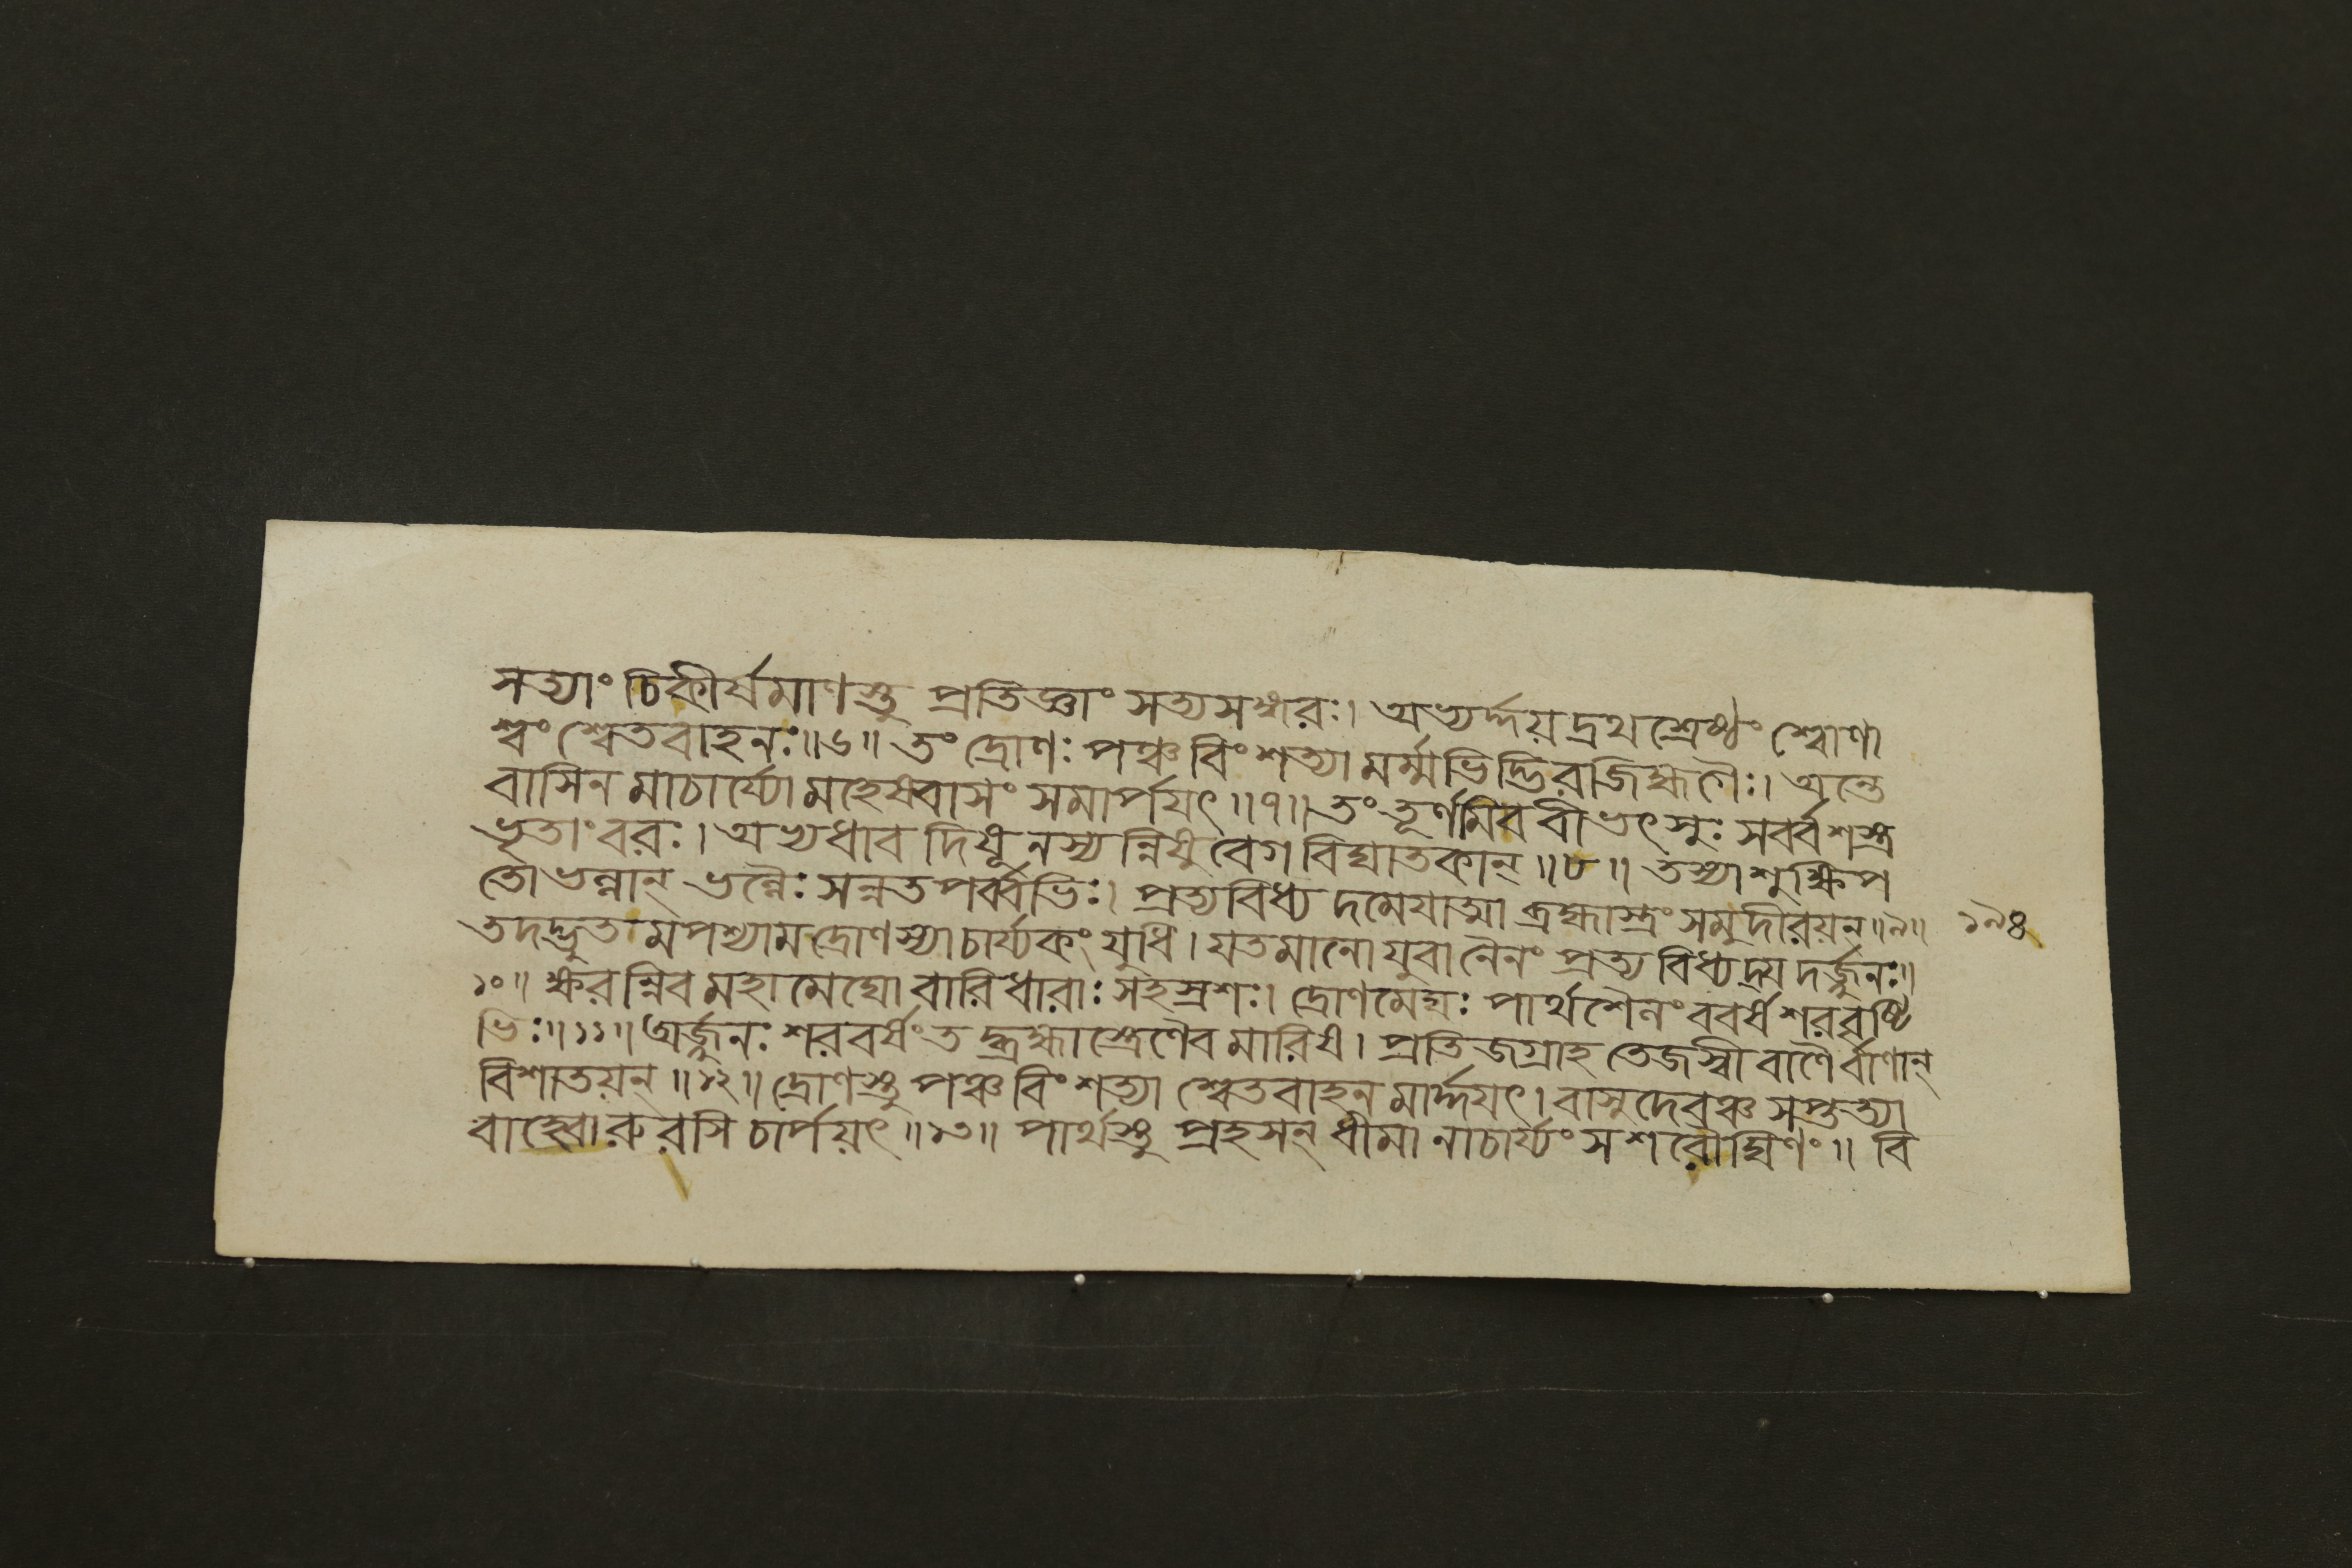 সত্যাং চিকীর্ষমাণস্তু প্রতিজ্ঞাং সত্যসঙ্গরঃ। অভ্যর্দ্দয়দ্রথশ্রেষ্ঠং শোণা
শ্বং শ্বেতবাহনঃ॥৬॥ তং দ্রোণঃ পঞ্চবিংশত্যা মর্ম্মভিদ্ভিরজিহ্মগৈঃ। অন্তে
বাসিনমাচার্য্যো মহেষ্বাসং সমার্পয়ৎ॥৭॥ তং তূর্ণমিব বীভৎসুঃ সর্ব্বশস্ত্র
ভৃতাং বরঃ। অভ্যধাবদিষূনস্যন্নিষুবেগবিঘাতকান্॥৮॥ তস্যাশুক্ষিপ
তো ভল্লান্ ভল্লৈঃ সন্নতপর্ব্বভিঃ। প্রত্যবিধ্যদমেয়াত্মা ব্রহ্মাস্ত্রং সমুদীরয়ন্॥৯॥ ১৯৪
তদদ্ভুতমপশ্যাম দ্রোণস্যাচার্য্যকং যুধি। যতমানো যুবা নৈনং প্রত্যবিধ্যদ্যদর্জ্জুনঃ॥
১০॥ ক্ষরন্নিব মহামেঘো বারিধারাঃ সহস্রশঃ। দ্রোণমেঘঃ পার্থশৈলং ববর্ষ শরবৃষ্টি
ভিঃ॥১১॥ অর্জ্জুনঃ শরবর্ষং তদ্ব্রহ্মাস্ত্রেণৈব মারিষ। প্রতিজগ্রাহ তেজস্বী বাণৈর্বাণান্
বিশাতয়ন্॥১২॥ দ্রোণস্তু পঞ্চবিংশত্যা শ্বেতবাহনমার্দ্দয়ৎ। বাসুদেবঞ্চ সপ্তত্যা
বাহ্বোরুরসি চার্পয়ৎ॥১৩॥ পার্থস্তু প্রহসন্ ধীমানাচার্য্যং সশরৌঘিণং॥ বি